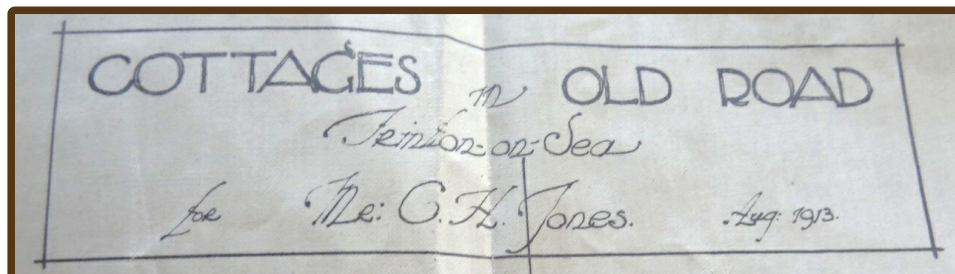 COTTAGES in OLD ROAD
Frinton-on-Sea
for Mr: C. H. Jones. Aug: 1913.